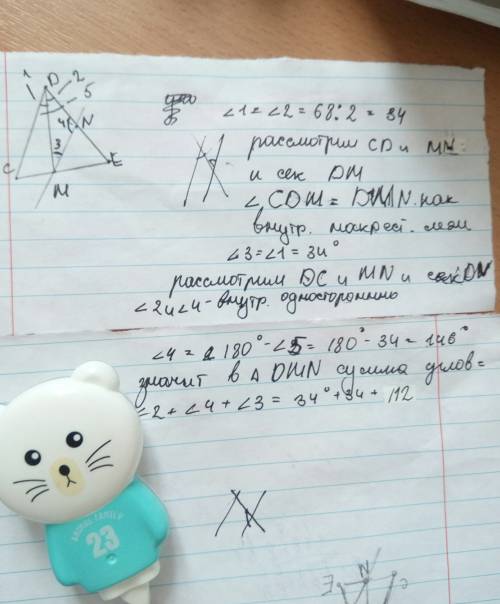 1 D 2
5
4 N
3
C E
M
∠1 = ∠2 = 68:2 = 34
рассмотрим CD и MN
и сек DM
∠CDM = DMN как
внутр. накрест. леж
∠3 = ∠1 = 34°
рассмотрим DC и MN и сек DN
∠2и∠4 - внутр. односторонние
∠4 = 180° - ∠5 = 180° - 34 = 146°
значит в △ DMN сумма углов =
∠2 + ∠4 + ∠3 = 34° + 34 + 112
ANIMAL FAMILY
23
N
E C